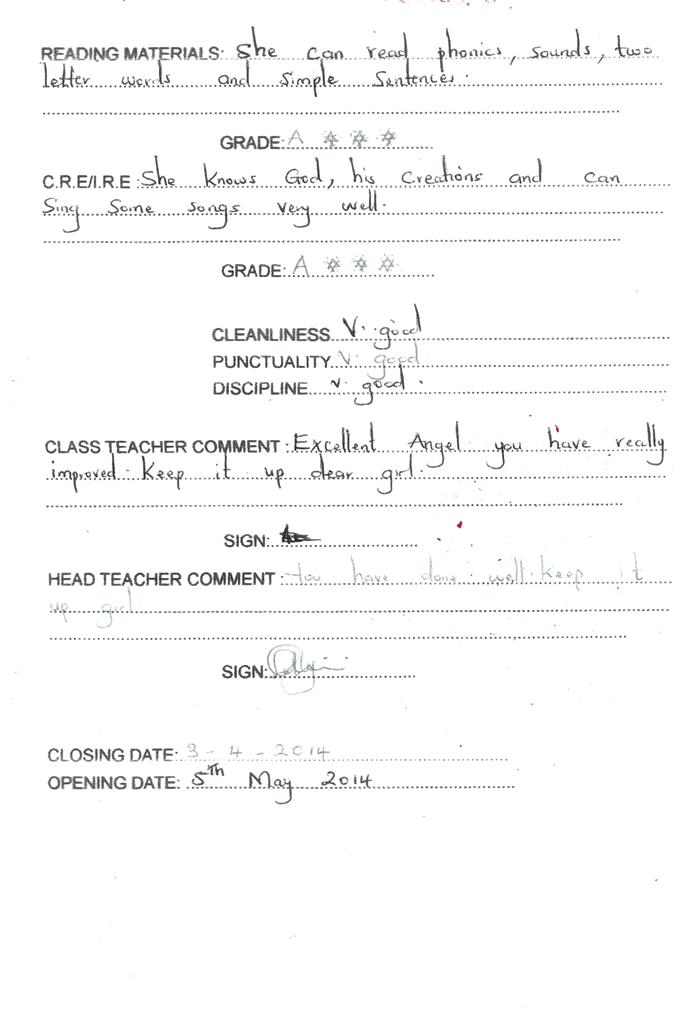 READING MATERIALS: She can read phonics, sounds, two
letter words and simple Sentences.
GRADE: A ✡ ✡ ✡
C.R.E/I.R.E : She knows God, his Creations and can
Sing Some songs very well.
GRADE: A ✡ ✡ ✡
CLEANLINESS V. good
PUNCTUALITY V. good
DISCIPLINE v. good.
CLASS TEACHER COMMENT : Excellent Angel you have really
improved. Keep it up dear girl.
SIGN:
HEAD TEACHER COMMENT : You have done well. Keep it
up girl.
SIGN:
CLOSING DATE: 3 - 4 - 2014
OPENING DATE: 5th May 2014